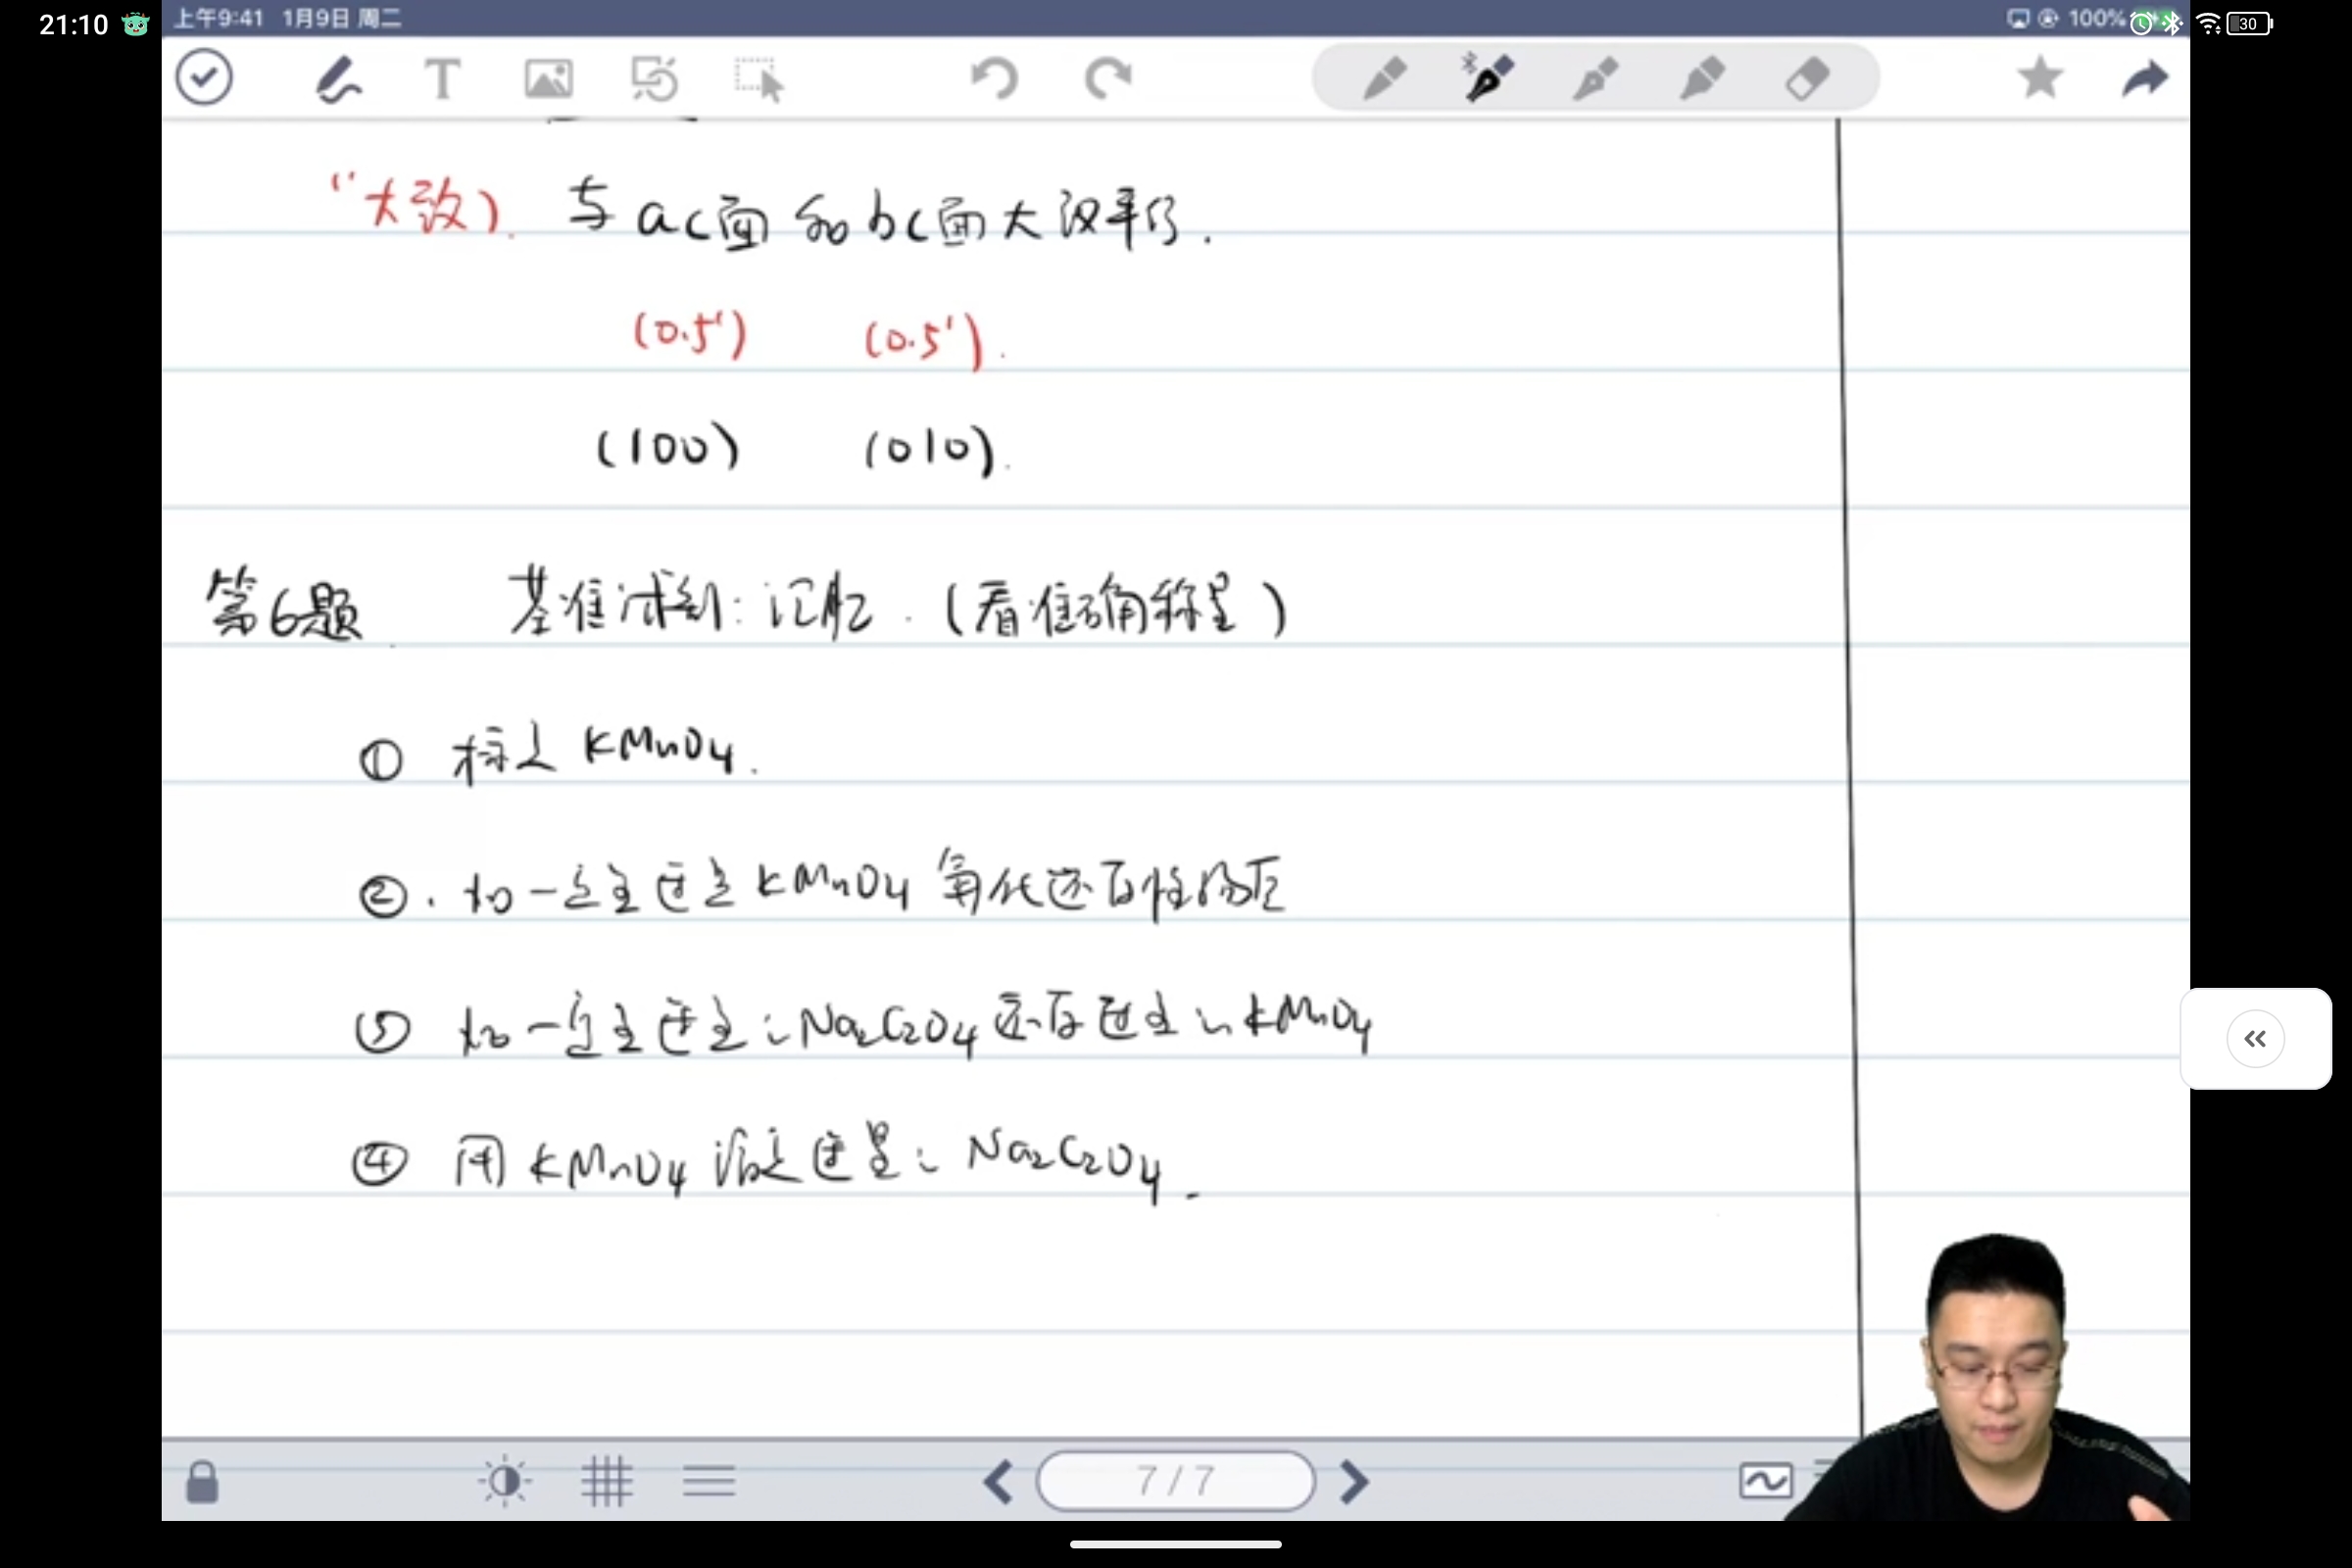 21:10
上午9:41 1月9日 周二
100%
30
"大致) 与ac面和bc面大致平行.
(0.5') (0.5').
(100) (010).
第6题 基准试剂:记忆.(看准确称量)
① 标定KMnO4.
②.加一定量过量KMnO4氧化还原性物质
③ 加一定量过量的Na2C2O4还原过量的KMnO4
④ 用KMnO4滴定过量的Na2C2O4.
7/7